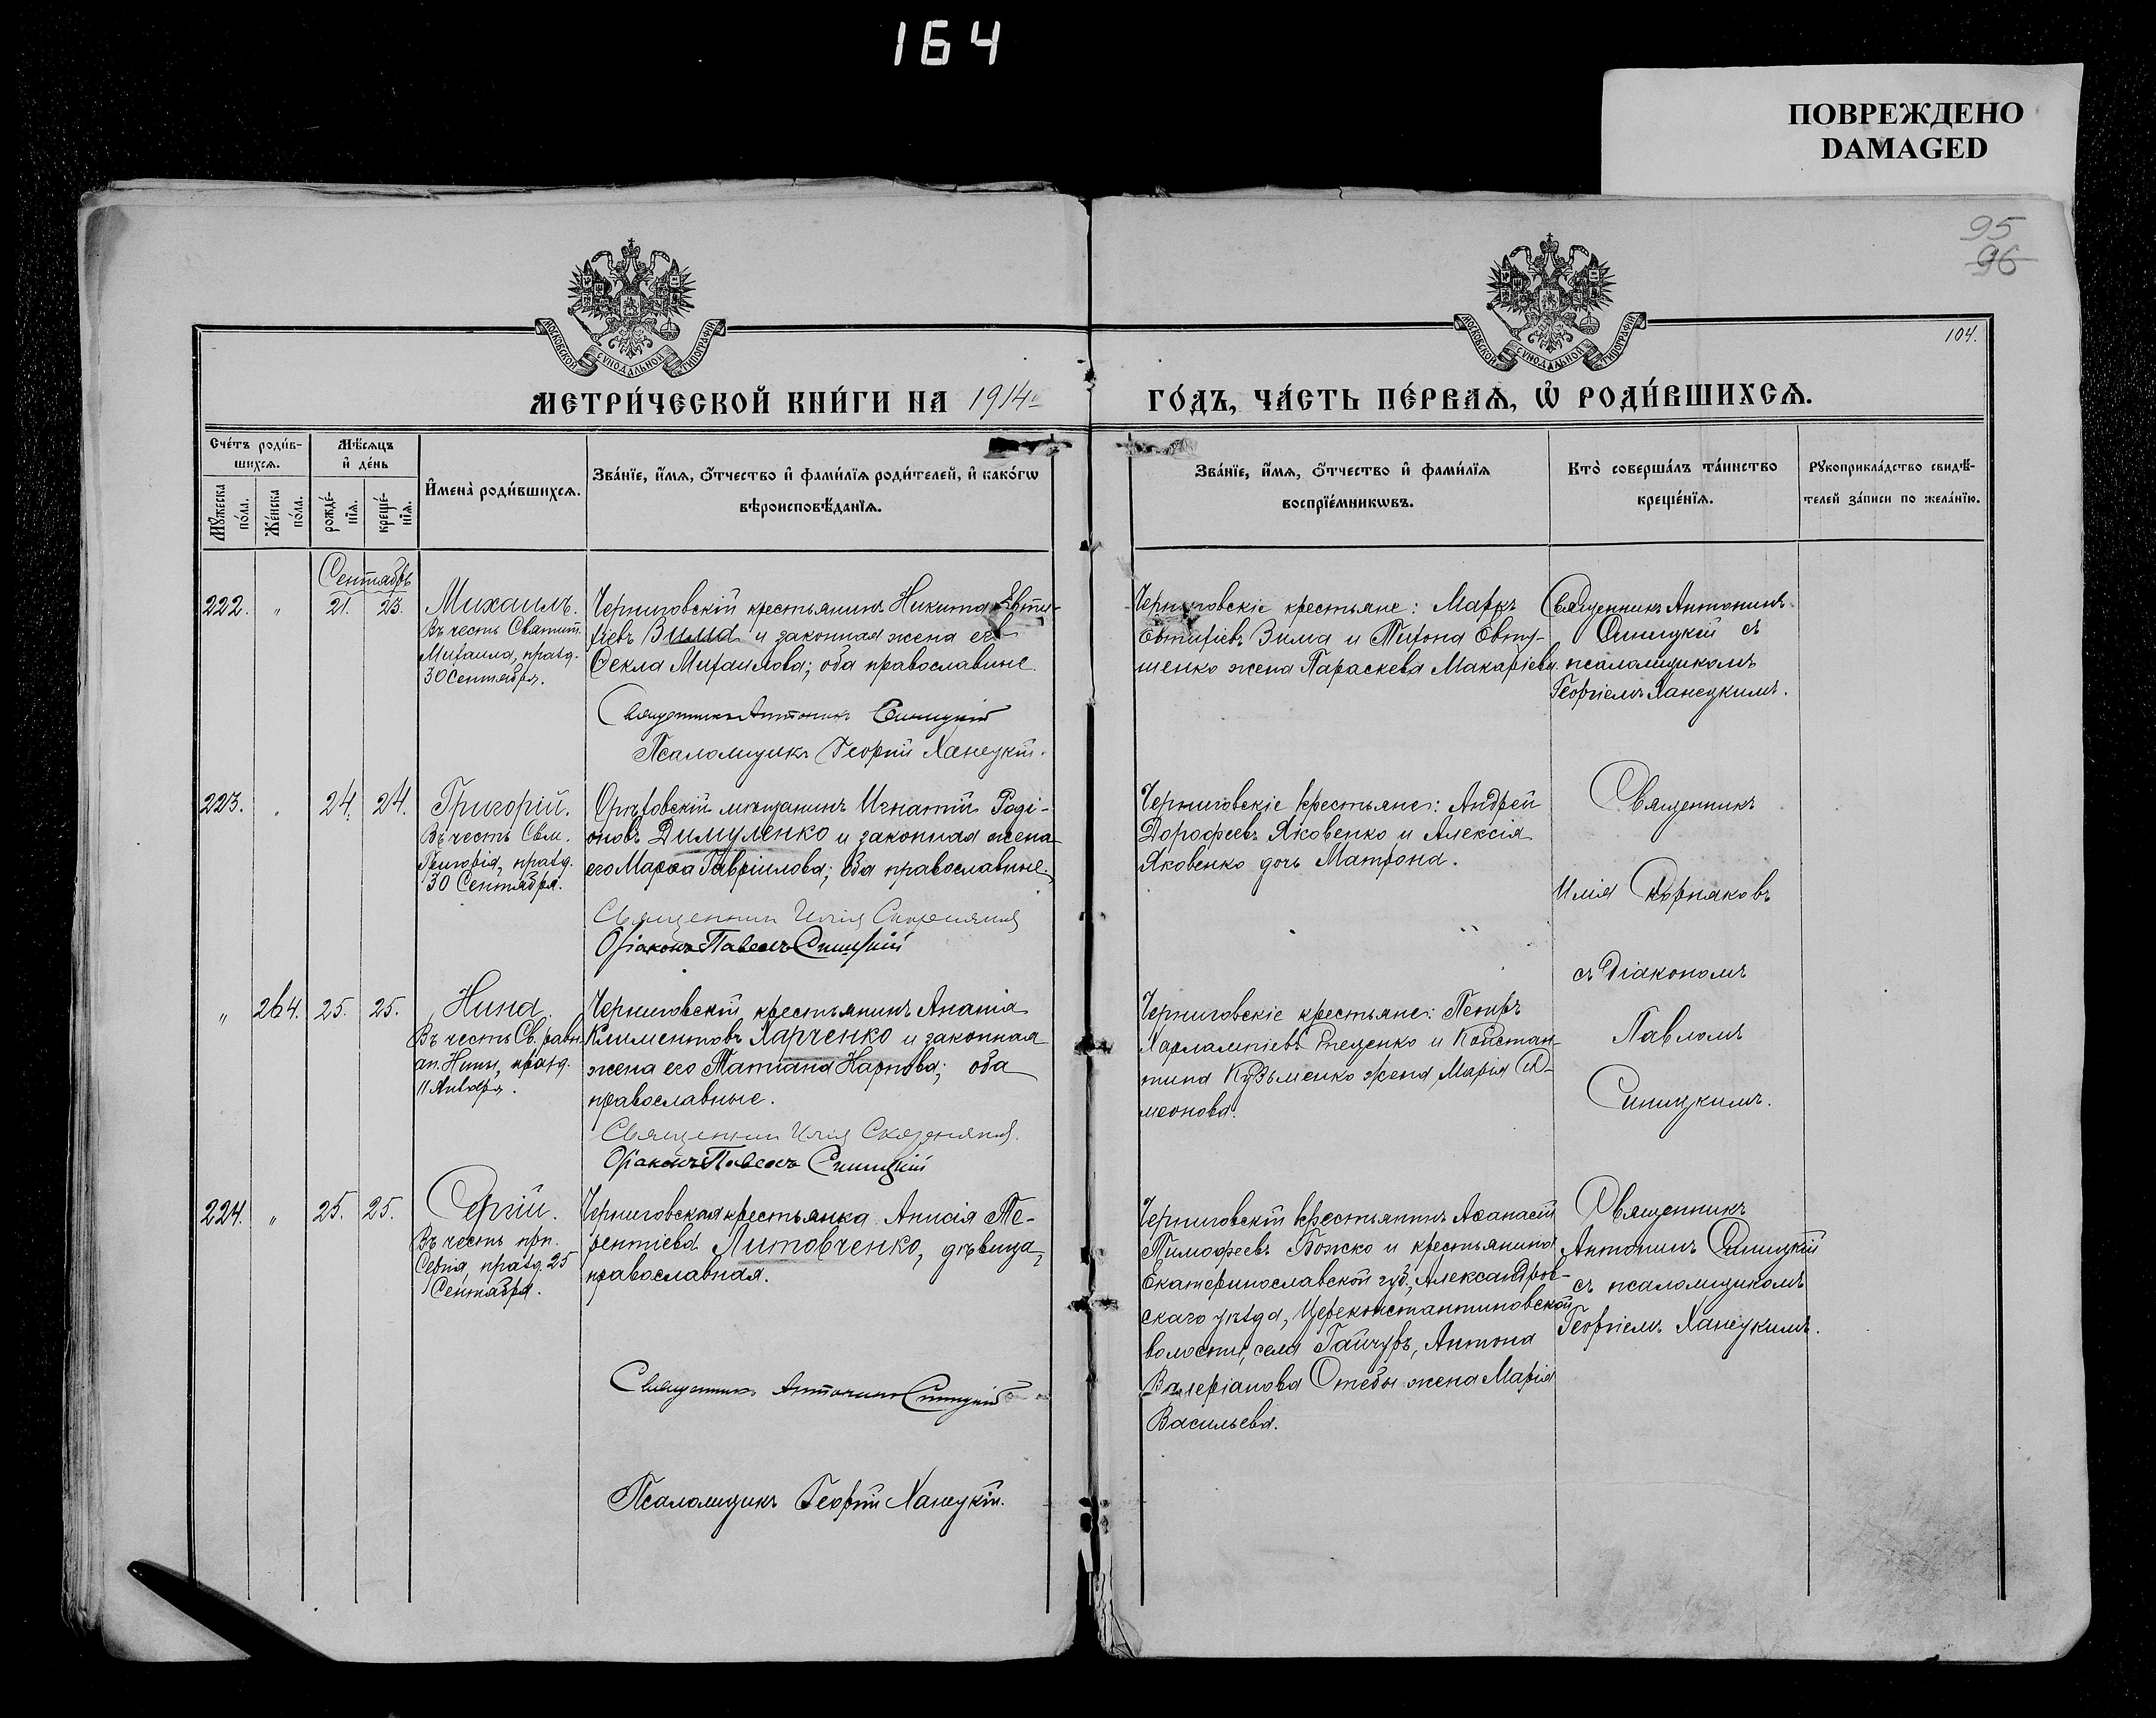 164
ПОВРЕЖДЕНО
DAMAGED
95
96
104.
МОСКОВСКОЙ СѴНОДАЛЬНОЙ ТИПОГРАФІИ
МОСКОВСКОЙ СѴНОДАЛЬНОЙ ТИПОГРАФІИ
МЕТРИ́ЧЕСКОЙ КНИ́ГИ НА 1914
ГО́ДЪ, ЧА́СТЬ ПЕ́РВАѦ, Ѡ РОДИ́ВШИХСѦ.
Сче́тъ роди́в-
шихсѧ.
Мѣ́сяцъ
и де́нь
Мꙋ́жеска по́ла.
Же́нска по́ла.
рожде́-нїѧ.
креще́-нїѧ.
Имена̀ роди́вшихсѧ.
Зва́нїе, и́мѧ, о́тчество и фами́лїѧ роди́телей, и како́гѡ
вѣроисповѣ́данїѧ.
Зва́нїе, и́мѧ, о́тчество и фами́лїѧ
воспрїе́мникѡвъ.
Кто̀ соверша́лъ та́инство
креще́нїѧ.
Рꙋкоприкла́дство свидѣ́-
телей за́писи по жела́нїю.
Сентябрь
222. " 21. 23. Михаилъ.
Въ честь Святит.
Михаила, празд.
30 Сентября.
Черниговскій крестьянинъ Никита Евти-
фіевъ Зима и законная жена его
Ѳекла Михаилова; оба православные.
Священникъ Антонинъ Синицкій
Псаломщикъ Георгій Ханецкій.
Черниговскіе крестьяне: Маркъ
Евтифіевъ Зима и Тихона Евту-
шенко жена Параскева Макаріева.
Священникъ Антонинъ
Синицкій съ
псаломщикомъ
Георгіемъ Ханецкимъ.
223. " 24. 24. Григорій.
Въ честь Свщ.
Григорія, празд.
30 Сентября.
Орѣховскій мѣщанинъ Игнатій Родi-
оновъ Димуленко и законная жена
его Марѳа Гавріилова; оба православные.
Священник Илія
Діаконъ Павелъ Синицкій
Черниговскіе крестьяне: Андрей
Дорофеевъ Яковенко и Алексія
Яковенко дочь Матрона.
Священникъ
Илія
съ Діакономъ
Павломъ
Синицкимъ.
" 264. 25. 25. Нина.
Въ честь Св. равн.
ап. Нины, празд.
11 Января.
Черниговскій крестьянинъ Ананія
Климентовъ Харченко и законная
жена его Татіана Карпова; оба
православные.
Священник Илія
Діаконъ Павелъ Синицкій
Черниговскіе крестьяне: Петръ
Харлампіевъ и Констан-
тина Кузьменко жена Марія Си-
меонова.
224. " 25. 25. Сергій.
Въ честь прп.
Сергія, празд. 25
Сентября.
Черниговская крестьянка Анисія Те-
рентіева Литовченко, дѣвица,
православная.
Священникъ Антонинъ Синицкій
Псаломщикъ Георгій Ханецкій.
Черниговскій крестьянинъ Аѳанасій
Тимофеевъ Божко и крестьянина
Екатеринославской губ., Александров-
скаго уѣзда, Цареконстантиновской
волости, села Гайчуръ, Антона
Валеріанова жена Марія
Васильева.
Священникъ
Антонинъ Синицкій
съ псаломщикомъ
Георгіемъ Ханецкимъ.